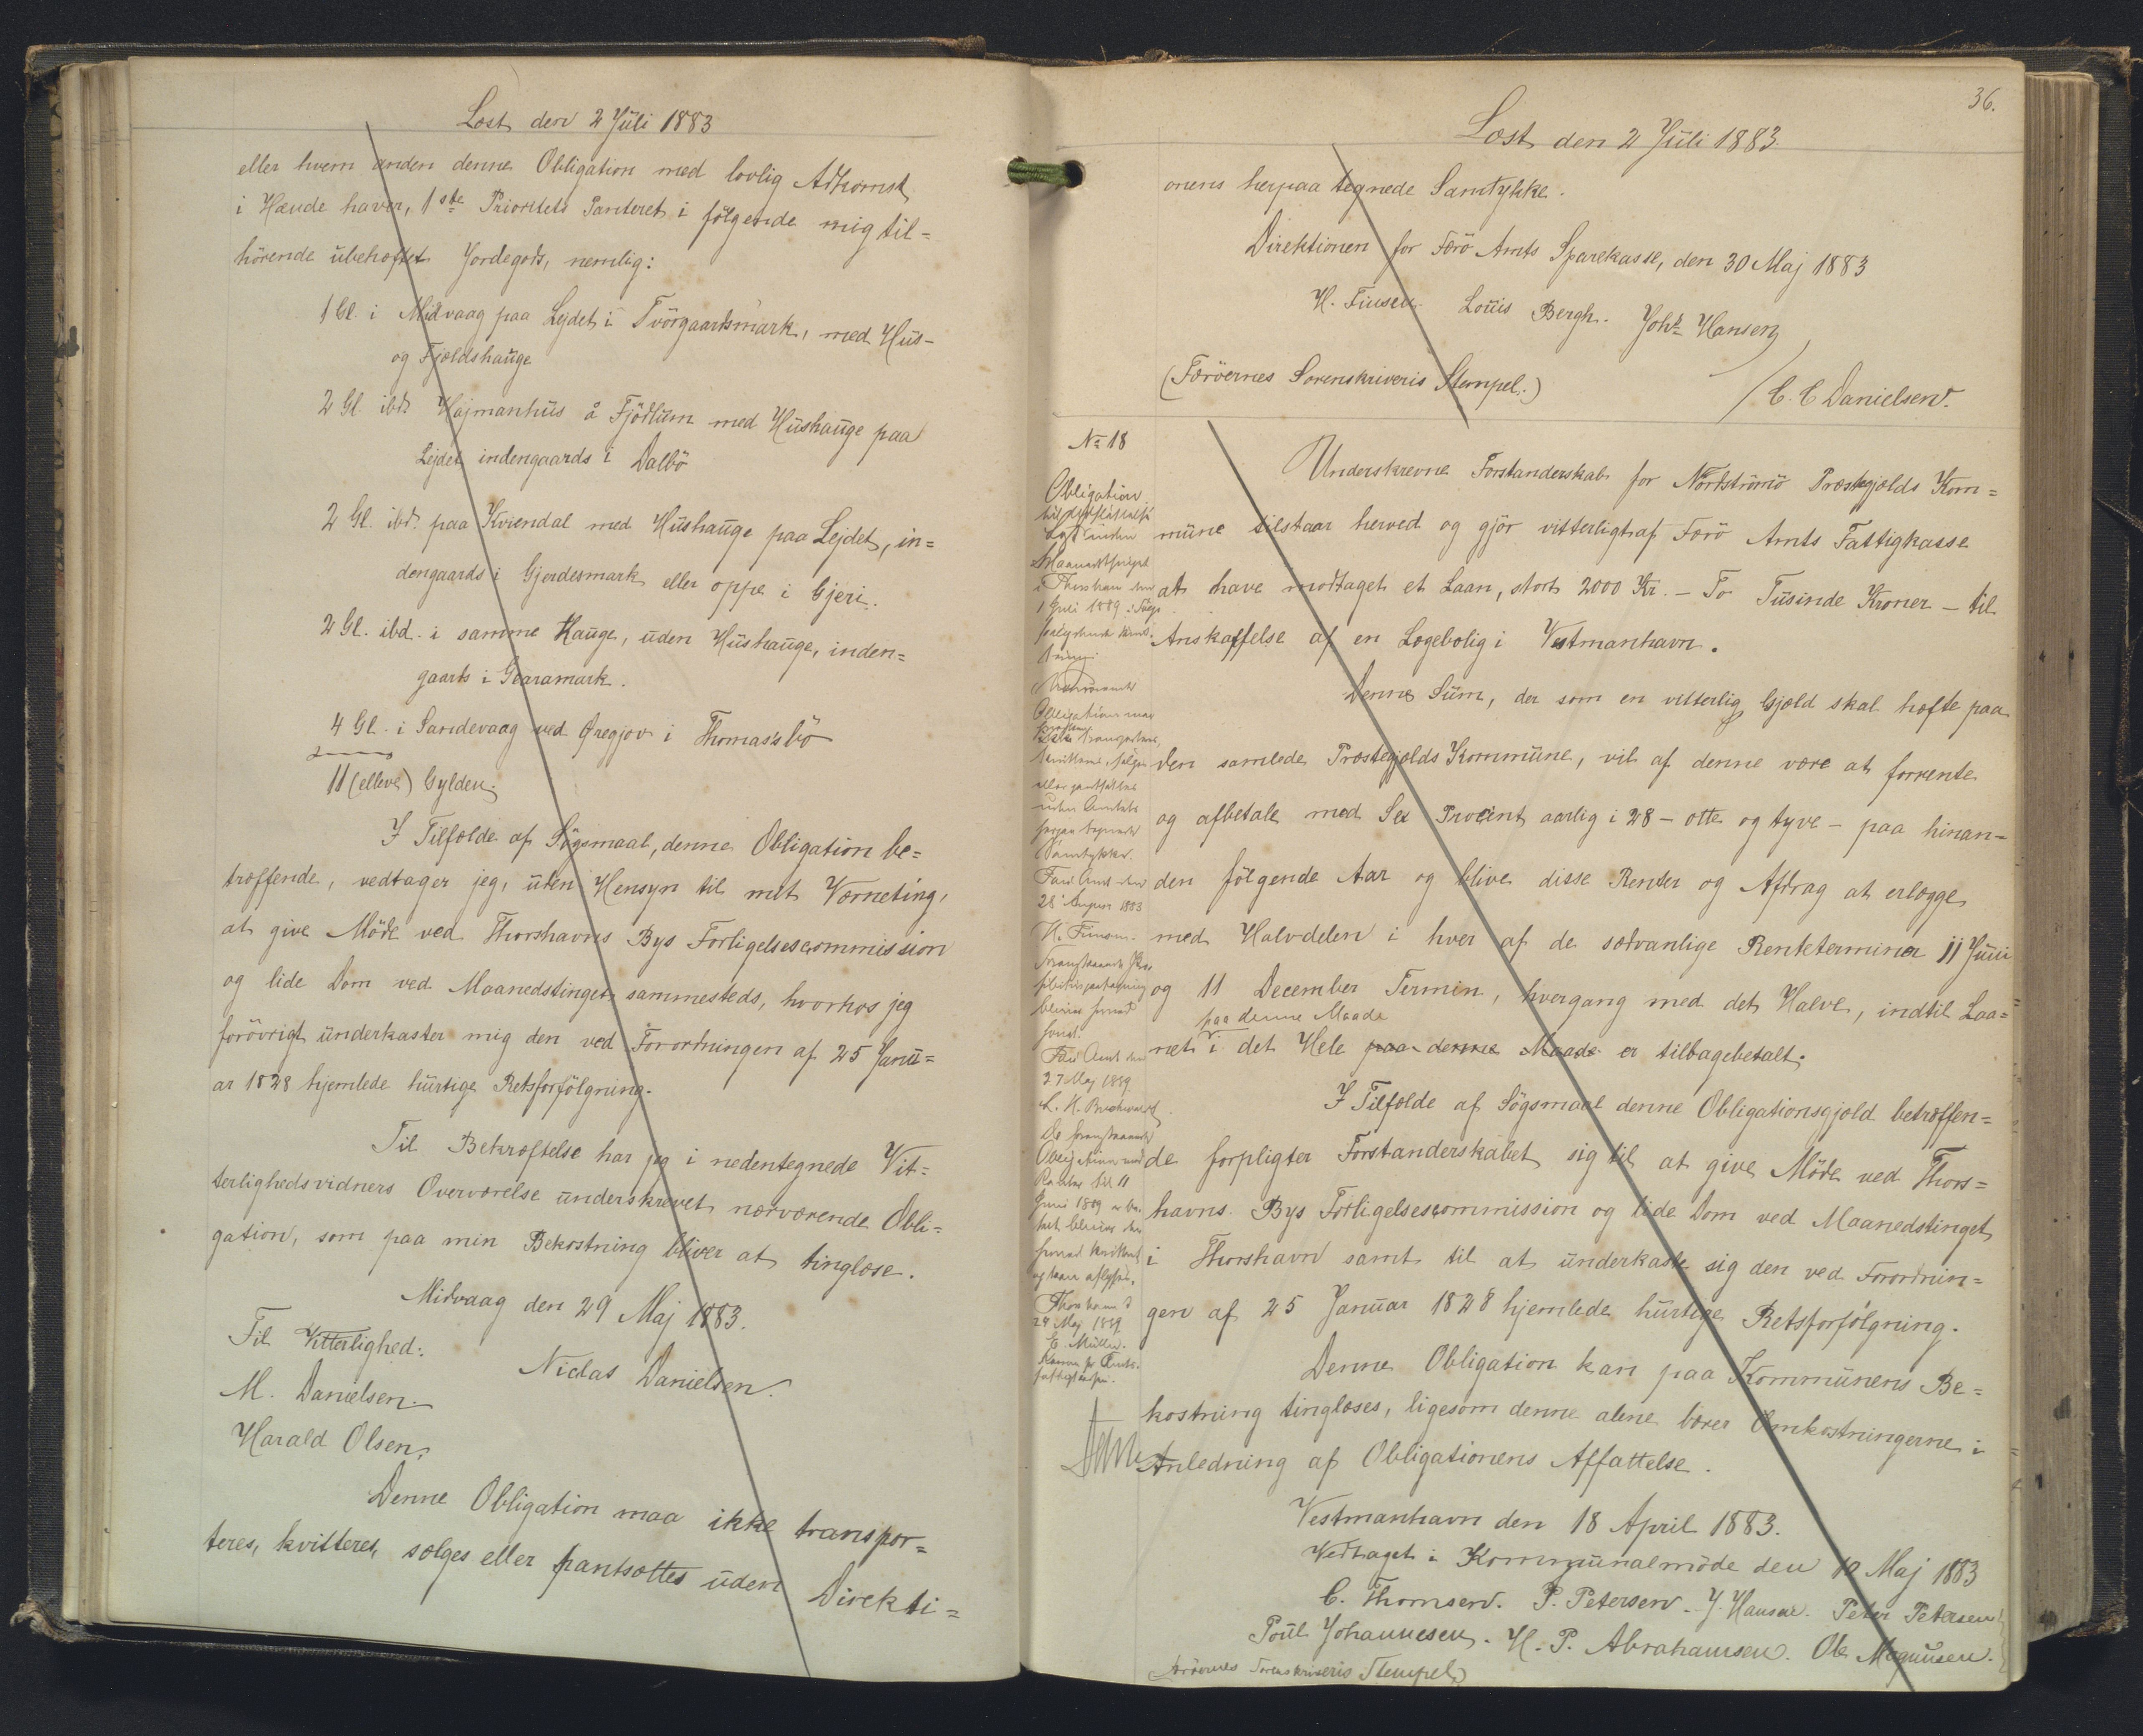 Læst den 2 Juli 1883
eller hvem anden denne Obligation med lovlig Adkomst
i Hænde haver, 1ste Prioritets Panteret i følgende mig til=
hörende übehæftet Jordegods, nemlig:
1 Gl. i Midvaag paa Lejdet i Tvörgaardsmark, med Hus-
og Fjeldshauge
2 Gl. ibd. Hajmanhus å Fjödlum med Hushauge paa
Lejdet indengaards i Dalbö
2 Gl. ibd. paa Kviendal med Hushauge paa Lejdet, in=
dengaards i Gjerdesmark eller oppe i Gjeri.
2 Gl. ibd. i samme Hauge, uden Hushauge, inden=
gaards i Gearamark.
4 Gl. i Sandevaag ved Øregjov i Thomas's bö
11 (elleve) Gylden.
I Tilfælde af Sögsmaal, denne Obligation be=
træffende, vedtager jeg, uden Hensyn til mit Værneting,
at give Möde ved Thorshavns Bys Forligelsescommission
og lide Dom ved Maanedstinget sammesteds, hvorhos jeg
forövrigt underkaster mig den ved Forordningen af 25 Janu=
ar 1828 hjemlede hurtige Retsforfölgning.
Til Bekræftelse har jeg i nedentegnede Vit=
terlighedsvidners Overværelse underskrevet nærværende Obli=
gation, som paa min Bekostning bliver at tinglæse.
Midvaag den 29 Maj 1883.
Til Vitterlighed:
Niclas Danielsen.
M. Danielsen.
Harald Olsen.
Denne Obligation maa ikke transpor=
teres, kvitteres, sælges eller pantsættes uden Direkti=
36.
Læst den 2 Juli 1883.
onens herpaa tegnede Samtykke.
Direktionen for Færö Amts Sparekasse, den 30 Maj 1883
H. Finsen. Louis Bergh. Johs Hansen
/ C. C Danielsen.
(Færöernes Sorenskriveris Stempel.)
No 18
Obligation
1 Juli 1889
Obligation maa
28 August 1883
H. Finsen.
27 Maj 1889
Obligation med
Renter til 11
Juni 1889 er be-
talt bliver den
og kan aflyses.
Thorshavn d
28 Maj 1889
C. Müller.
Underskrevne Forstanderskab for Nordströmö Præstegjælds Kom=
mune tilstaar herved og gjör vitterligt af Færö Amts Fattigkasse
at have modtaget et Laan, stort 2000 Kr. - To Tusinde Kroner - til
Anskaffelse af en Lægebolig i Vestmanhavn.
Denne Sum, der som en vitterlig Gjæld skal hæfte paa
den samlede Præstegjælds Kommune, vil af denne være at forrente
og afbetale med Sex Procent aarlig i 28 - otte og tyve - paa hinan=
den fölgende Aar og blive disse Renter og Afdrag at erlægge
med Halvdelen i hver af de sædvanlige Renteterminer 11 Juni
og 11 December Termin, hvergang med det Halve, indtil Laa=
paa denne Maade
net i det Hele paa denne Maade er tilbagebetalt.
I Tilfælde af Sögsmaal denne Obligationsgjæld betræffen=
de forpligter Forstanderskabet sig til at give Möde ved Thors=
havns Bys Forligelsescommission og lide Dom ved Maanedstinget
i Thorshavn samt til at underkaste sig den ved Forordnin=
gen af 25 Januar 1828 hjemlede hurtige Retsforfölgning.
Denne Obligation kan paa Kommunens Be=
kostning tinglæses, ligesom denne alene bærer Omkostningerne i
Anledning af Obligationens Affattelse.
Vestmanhavn den 18 April 1883.
Vedtaget i Kommunalmöde den 10 Maj 1883
C. Thomsen. P. Petersen. J. Hansen. Peter Petersen
Poul Johannesen. H. P. Abrahamsen. Ole Magnusen.
(Færöernes Sorenskriveris Stempel)